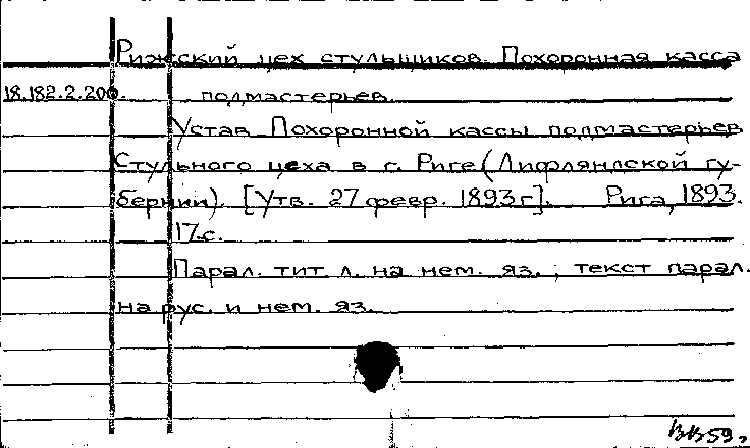 Рижский цех стульщиков. Похоронная касса
18.182.2.200. подмастерьев.
Устав Похоронной кассы подмастерьев
Стульного цеха в г. Риге (Лифляндской гу-
бернии). [Утв. 27 февр. 1893 г]. Рига, 1893.
17 с.
Парал. тит. л. на нем. яз.; текст парал.
на рус. и нем. яз.